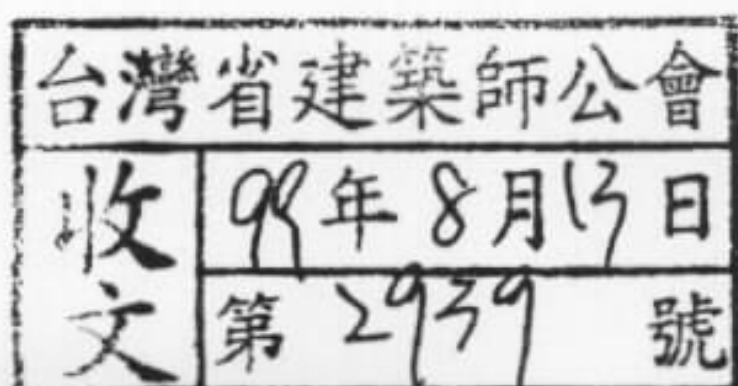 台灣省建築師公會
收文
99年8月13日
第2939號